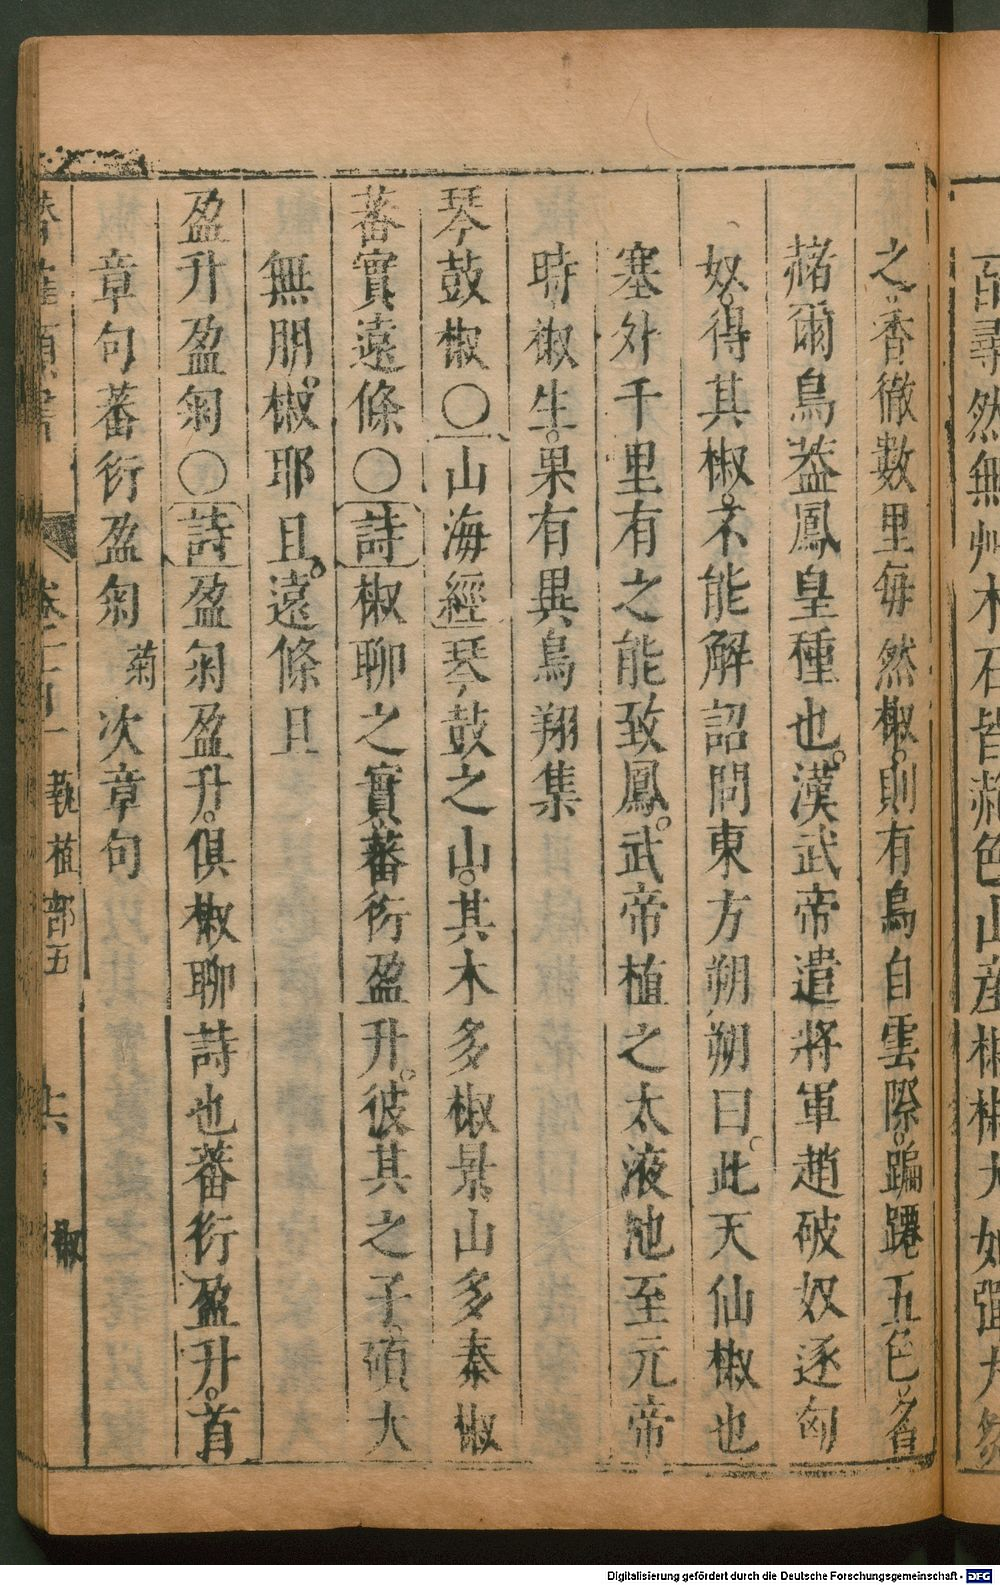 百尋然無艸木石皆赭色山産椒椒大如彈丸
之香徹數里每然椒則有鳥自雲際蹁躚五色名
赭爾鳥葢鳳皇種也漢武帝遣將軍趙破奴逐匈
奴得其椒不能解詔問東方朔朔曰此天仙椒也
塞外千里有之能致鳳武帝植之太液池至元帝
時椒生果有異鳥翔集
琴鼓椒○山海經琴鼓之山其木多椒景山多秦椒
蕃實遠條○詩椒聊之實蕃衍盈升彼其之子碩大
無朋椒耶且遠條且
盈升盈匊○詩盈匊盈升俱椒聊詩也蕃衍盈升首
章句蕃衍盈匊菊次章句
類書 卷二十一 蓺植部五 椒
Digitalisierung gefördert durch die Deutsche Forschungsgemeinschaft - DFG